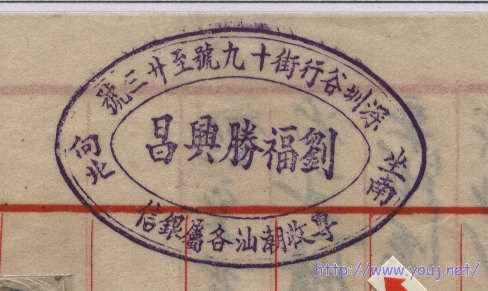 深圳谷行街十九號至廿三號
劉福勝興昌
坐南
向北
專收潮汕各屬銀信
http://www.youj.net/